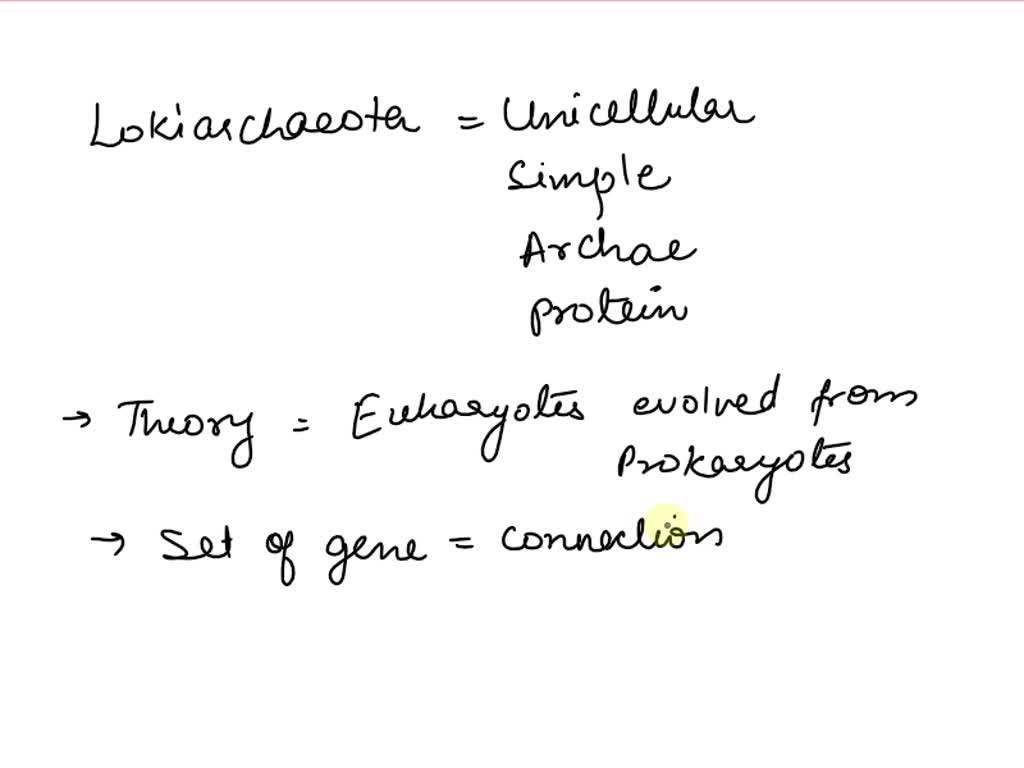 Lokiarchaeota = Unicellular
Simple
Archae
Protein
→ Theory = Eukaryotes evolved from
Prokaryotes
→ Set of gene = connection